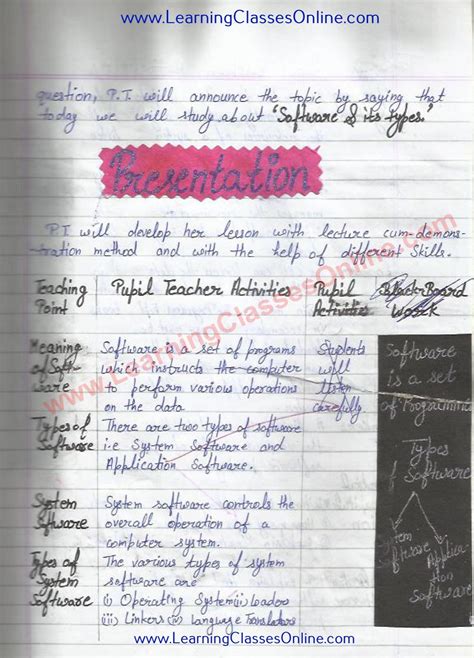 www.LearningClassesOnline.com
question, P.T. will announce the topic by saying that
today we will study about 'Software & its types.'
Presentation
P.T will develop her lesson with lecture cum-demons-
tration method and with the help of different Skills.
Teaching Point
Pupil Teacher Activities
Pupil Activities
BlackBoard Work
Meaning of Soft-ware
Software is a set of programs
which instructs the computer
to perform various operations
on the data
Students
will
listen
carefully.
Software
is a set
of Programme
Types of
Software
There are two types of software
i.e System Software and
Application Software.
Types
of Software
System
Software
Applica
tion
Software
System
Software
System software controls the
overall operation of a
computer system.
Types of
System
Software
The various types of system
software are
(i) Operating System (ii) Loaders
(iii) Linkers (iv) Language Translators
www.LearningClassesOnline.com
www.LearningClassesOnline.com